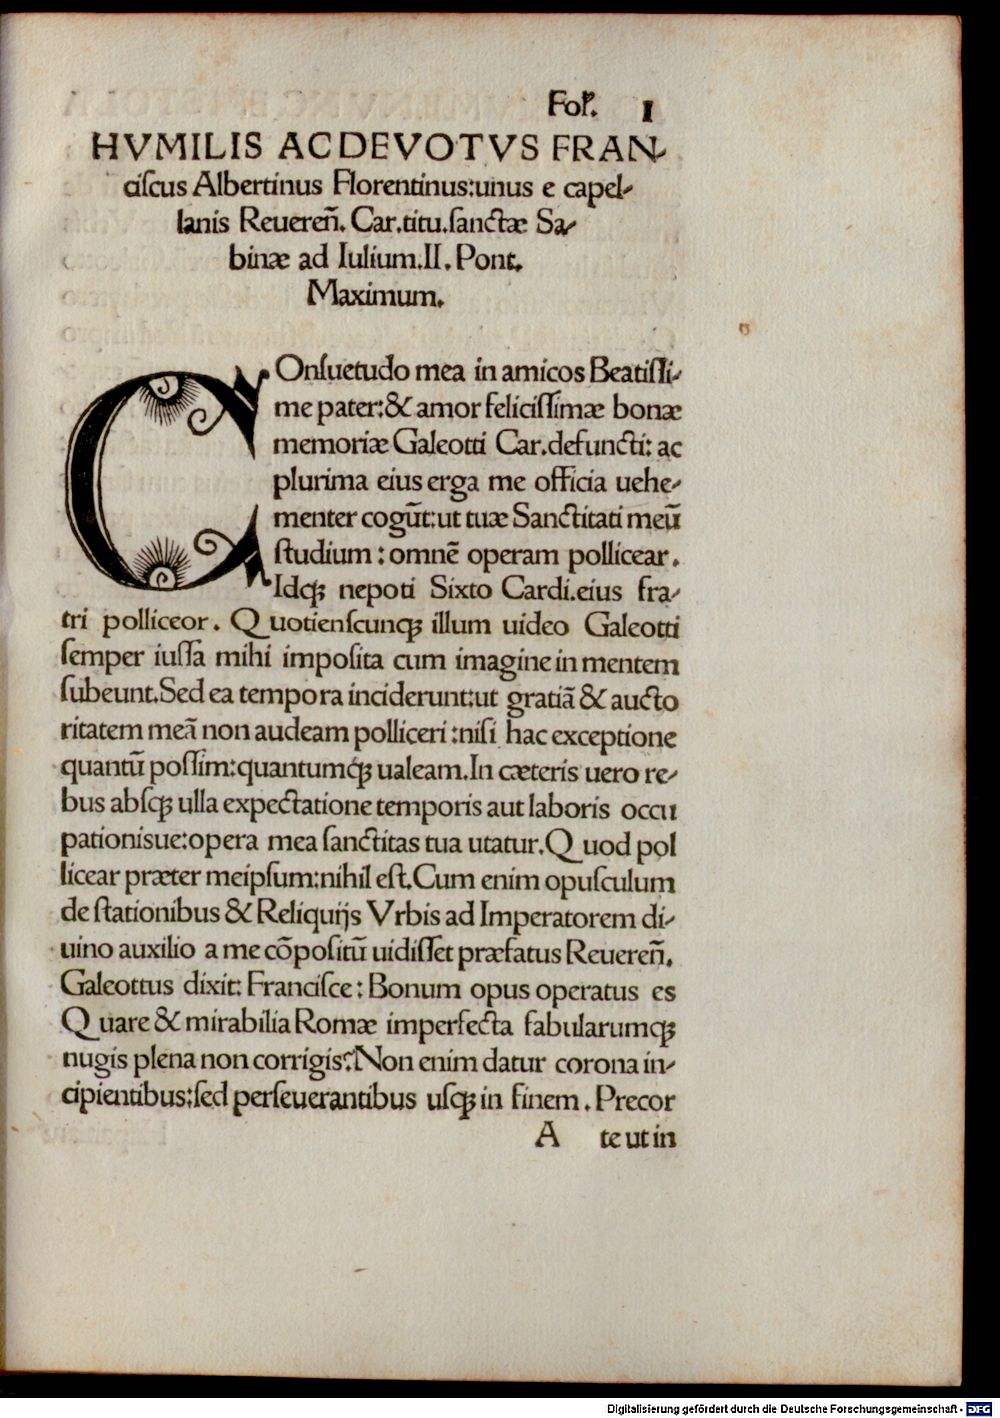 Fol. I
HVMILIS AC DEVOTVS FRAN-
ciſcus Albertinus Florentinus:unus e capel-
lanis Reuereñ. Car.titu.ſanctæ Sa-
binæ ad Iulium.II. Pont.
Maximum.
COnſuetudo mea in amicos Beatiſſi-
me pater:& amor feliciſſimæ bonæ
memoriæ Galeotti Car.defuncti: ac
plurima eius erga me officia uehe-
menter cogūt:ut tuæ Sanctitati meū
ſtudium : omnē operam pollicear.
Idqꝫ nepoti Sixto Cardi.eius fra-
tri polliceor. Quotienſcunqꝫ illum uideo Galeotti
ſemper iuſſa mihi impoſita cum imagine in mentem
ſubeunt.Sed ea tempora inciderunt:ut gratiā & aucto
ritatem meā non audeam polliceri :niſi hac exceptione
quantū poſſim:quantumqꝫ ualeam.In cæteris uero re-
bus abſqꝫ ulla expectatione temporis aut laboris occu
pationisue:opera mea ſanctitas tua utatur.Quod pol
licear præter meipſum:nihil eſt.Cum enim opuſculum
de ſtationibus & Reliquijs Vrbis ad Imperatorem di-
uino auxilio a me cōpoſitū uidiſſet præfatus Reuereñ.
Galeottus dixit: Franciſce: Bonum opus operatus es
Quare & mirabilia Romæ imperfecta fabularumqꝫ
nugis plena non corrigis?Non enim datur corona in-
cipientibus:ſed perſeuerantibus uſqꝫ in finem. Precor
A te ut in
Digitalisierung gefördert durch die Deutsche Forschungsgemeinschaft - DFG